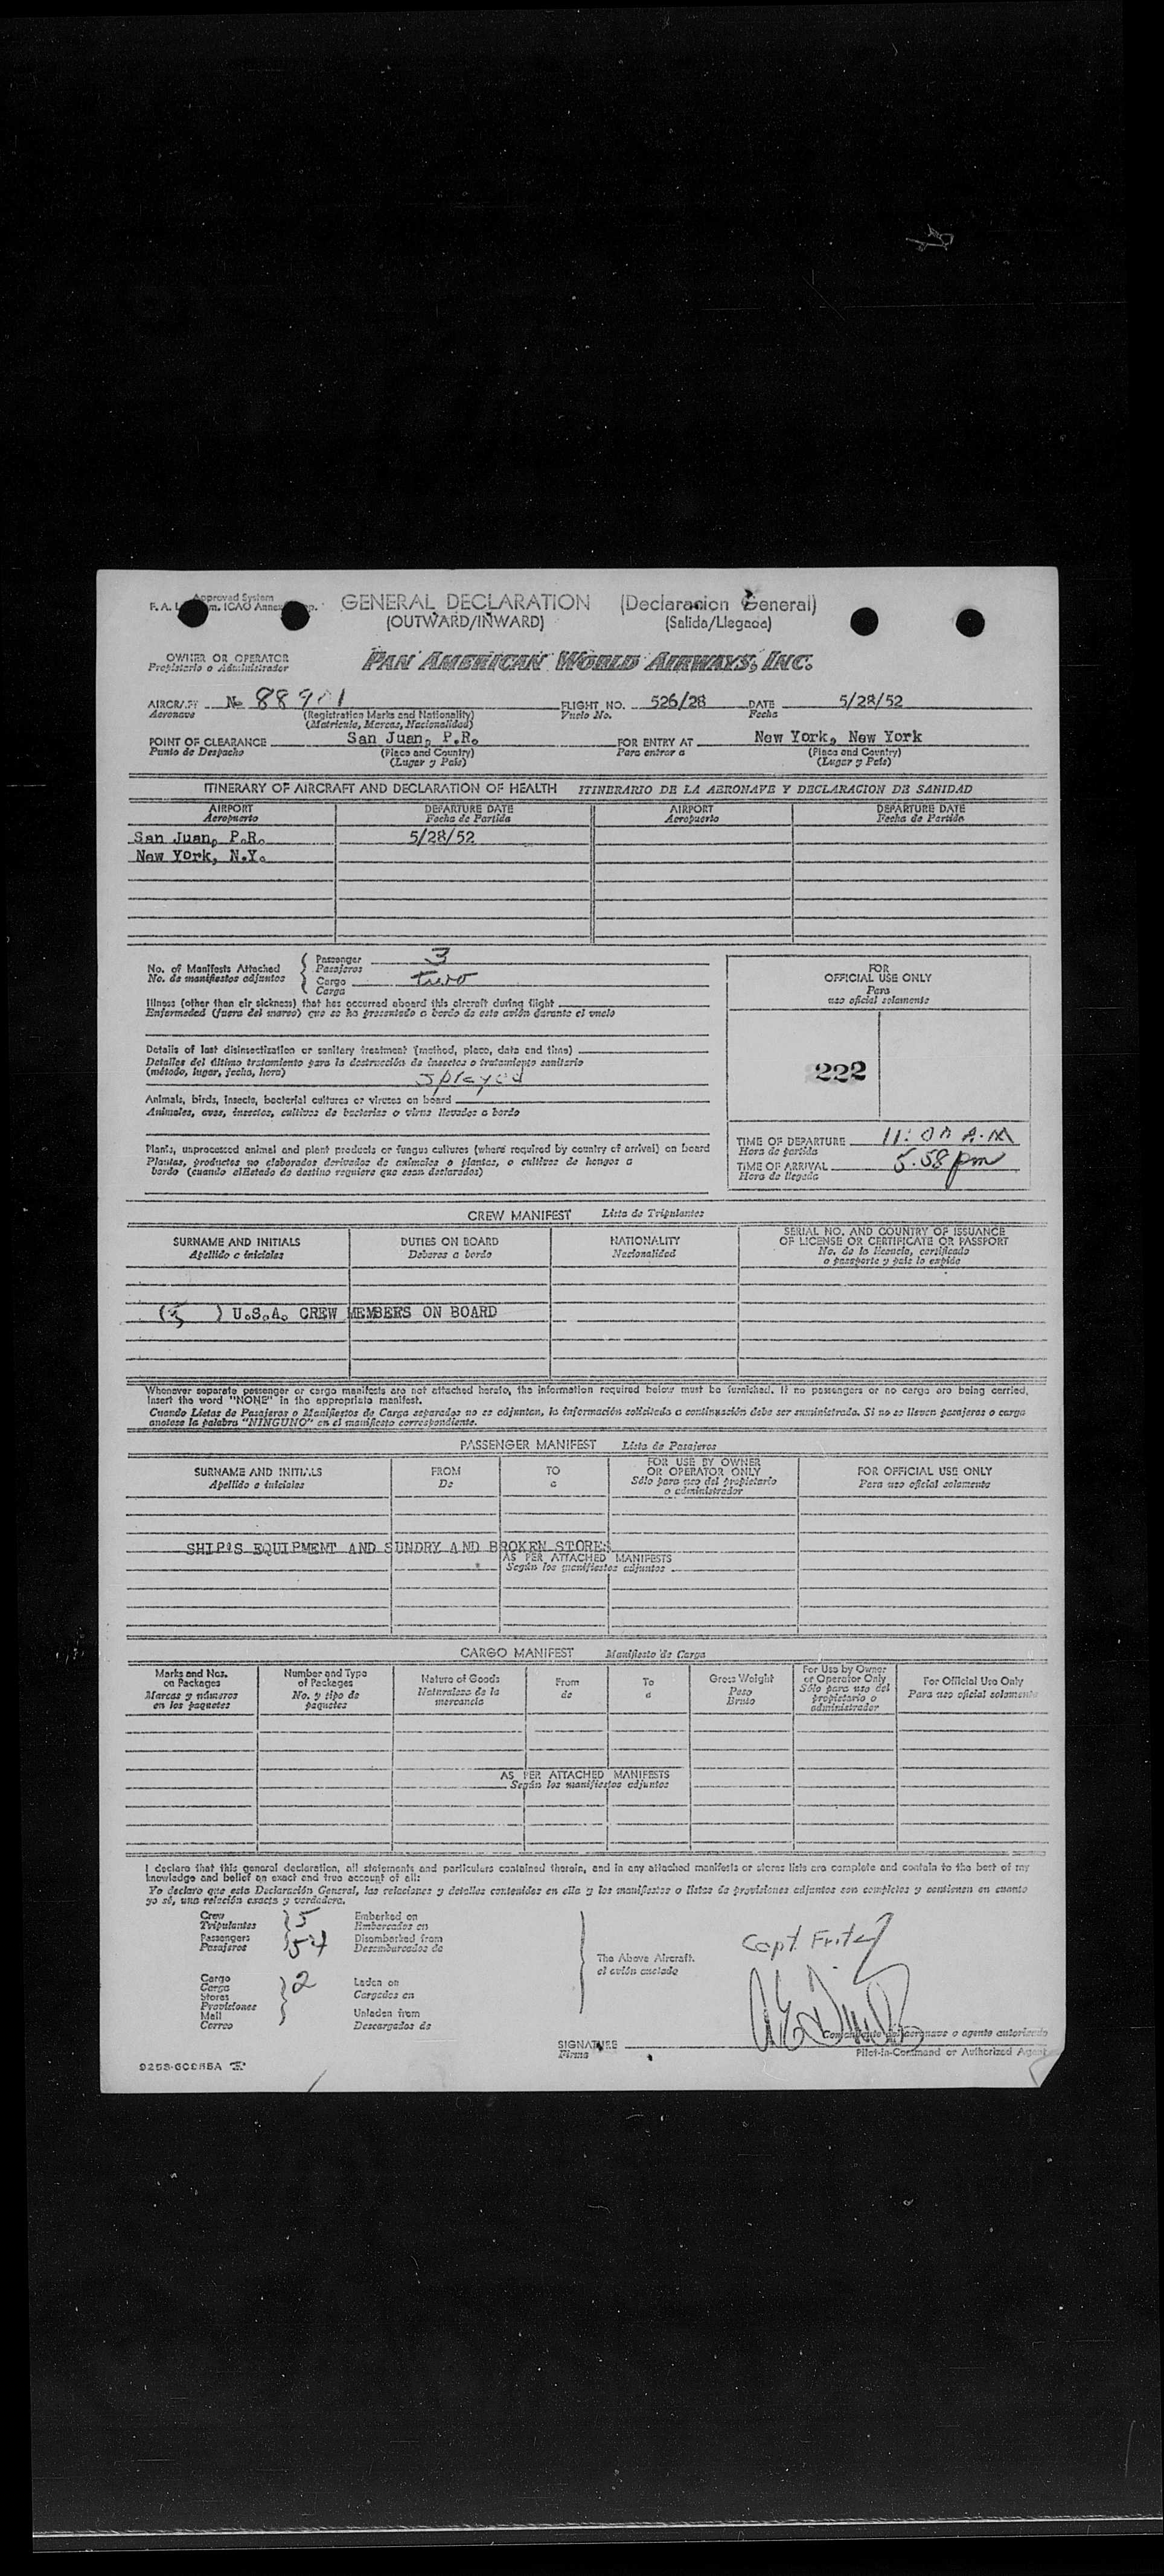 Approved System
F. A. L. m. ICAO Annex
GENERAL DECLARATION (Declaracion General)
(OUTWARD/INWARD) (Salida/Llegada)
OWNER OR OPERATOR
Propietario o Administrador
PAN AMERICAN WORLD AIRWAYS, INC.
AIRCRAFT No FLIGHT NO. 526/28 DATE 5/28/52
Aeronave (Registration Marks and Nationality) Vuelo No. Fecha
(Matricula, Marcas, Nacionalidad)
POINT OF CLEARANCE San Juan, P.R. FOR ENTRY AT New York, New York
Punto de Despacho (Place and Country) Para entrar a (Place and Country)
(Lugar y País) (Lugar y País)
ITINERARY OF AIRCRAFT AND DECLARATION OF HEALTH ITINERARIO DE LA AERONAVE Y DECLARACION DE SANIDAD
AIRPORT DEPARTURE DATE AIRPORT DEPARTURE DATE
Aeropuerto Fecha de Partida Aeropuerto Fecha de Partida
San Juan, P.R. 5/28/52
New York, N.Y.
No. of Manifests Attached Passenger 3
No. de manifiestos adjuntos Pasajeros
Cargo two
Carga
Illness (other than air sickness) that has occurred aboard this aircraft during flight
Enfermedad (fuera del mareo) que se ha presentado a bordo de este avión durante el vuelo
Details of last disinsectization or sanitary treatment (method, place, date and time)
Detalles del último tratamiento para la destrucción de insectos o tratamiento sanitario
(método, lugar, fecha, hora) sprayed
Animals, birds, insects, bacterial cultures or viruses on board
Animales, aves, insectos, cultivos de bacterias o virus llevados a bordo
Plants, unprocessed animal and plant products or fungus cultures (where required by country of arrival) on board
Plantas, productos no elaborados derivados de animales o plantas, o cultivos de hongos a
bordo (cuando elEstado de destino requiere que sean declarados)
FOR
OFFICIAL USE ONLY
Para
uso oficial solamente
222
TIME OF DEPARTURE 11:00 A.M
Hora de partida
TIME OF ARRIVAL 5.58 pm
Hora de llegada
CREW MANIFEST Lista de Tripulantes
SURNAME AND INITIALS DUTIES ON BOARD NATIONALITY SERIAL NO. AND COUNTRY OF ISSUANCE
OF LICENSE OR CERTIFICATE OR PASSPORT
Apellido e iniciales Deberes a bordo Nacionalidad No. de la licencia, certificado
o pasaporte y país lo expide
(5) U.S.A. CREW MEMBERS ON BOARD
Whenever separate passenger or cargo manifests are not attached hereto, the information required below must be furnished. If no passengers or no cargo are being carried,
insert the word "NONE" in the appropriate manifest.
Cuando Listas de Pasajeros o Manifiestos de Carga separados no se adjuntan, la información solicitada a continuación debe ser suministrada. Si no se lleven pasajeros o carga
anotese la palabra "NINGUNO" en el manifiesto correspondiente.
PASSENGER MANIFEST Lista de Pasajeros
SURNAME AND INITIALS FROM TO FOR USE BY OWNER
OR OPERATOR ONLY FOR OFFICIAL USE ONLY
Apellido e iniciales De a Sólo para uso del propietario
o administrador Para uso oficial solamente
SHIP'S EQUIPMENT AND SUNDRY AND BROKEN STORES
AS PER ATTACHED MANIFESTS
Según los manifiestos adjuntos
CARGO MANIFEST Manifiesto de Carga
Marks and Nos.
on Packages
Marcas y números
en los paquetes
Number and Type
of Packages
No. y tipo de
paquetes
Nature of Goods
Naturaleza de la
mercancia
From
de
To
a
Gross Weight
Peso
Bruto
For Use by Owner
or Operator Only
Sólo para uso del
propietario o
administrador
For Official Use Only
Para uso oficial solamente
AS PER ATTACHED MANIFESTS
Según los manifiestos adjuntos
I declare that this general declaration, all statements and particulars contained therein, and in any attached manifests or stores lists are complete and contain to the best of my
knowledge and belief an exact and true account of all:
Yo declaro que esta Declaración General, las relaciones y detalles contenidos en ella y los manifiestos o listas de provisiones adjuntos son completos y contienen en cuanto
yo sé, una relación exacta y verdadera.
Crew 5 Embarked on
Tripulantes Embarcados en
Passengers 54 Disembarked from
Pasajeros Desembarcados de
The Above Aircraft.
el avión anclado
Capt. Fritz
Cargo 2 Laden on
Carga Cargados en
Stores
Provisiones
Mail Unladen from
Correo Descargados de
SIGNATURE
Firma
Comandante del aeronave o agente autorizado
Pilot-in-Command or Authorized Agent